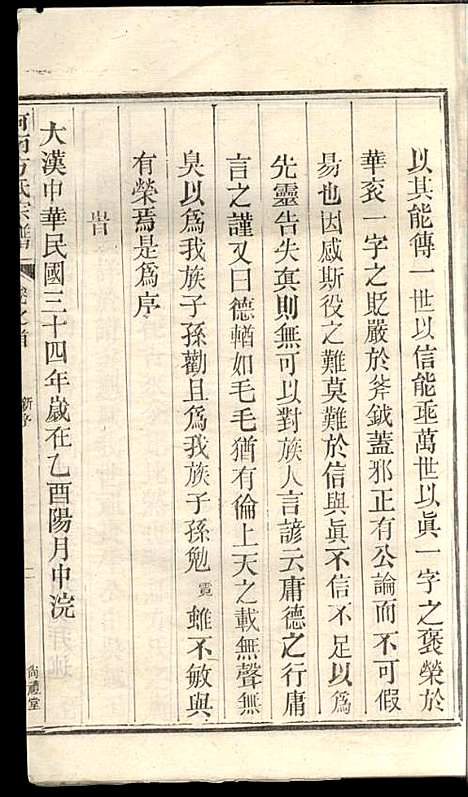 以其能傳一世以信能乖萬世以眞一字之褒榮於
華衮一字之貶嚴於斧鉞蓋邪正有公論而不可假
易也因感斯役之難莫難於信與眞不信不足以爲
先靈告失眞則無可以對族人言諺云庸德之行庸
言之謹又曰德輶如毛毛猶有倫上天之載無聲無
臭以爲我族子孫勸且爲我族子孫勉霓雖不敏與
有榮焉是爲序
旹
大漢中華民國三十四年歲在乙酉陽月中浣
河南方氏宗譜 卷之首 新序 二 尚禮堂